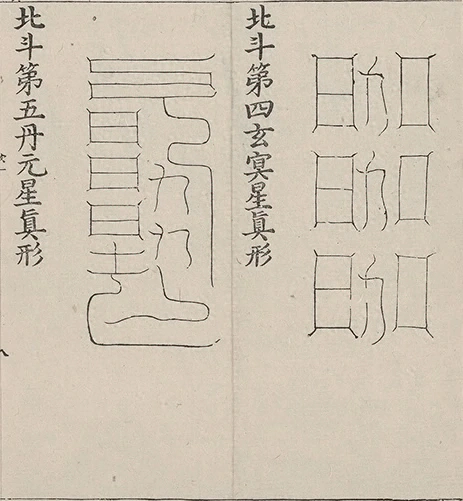 北斗第四玄冥星眞形
北斗第五丹元星眞形